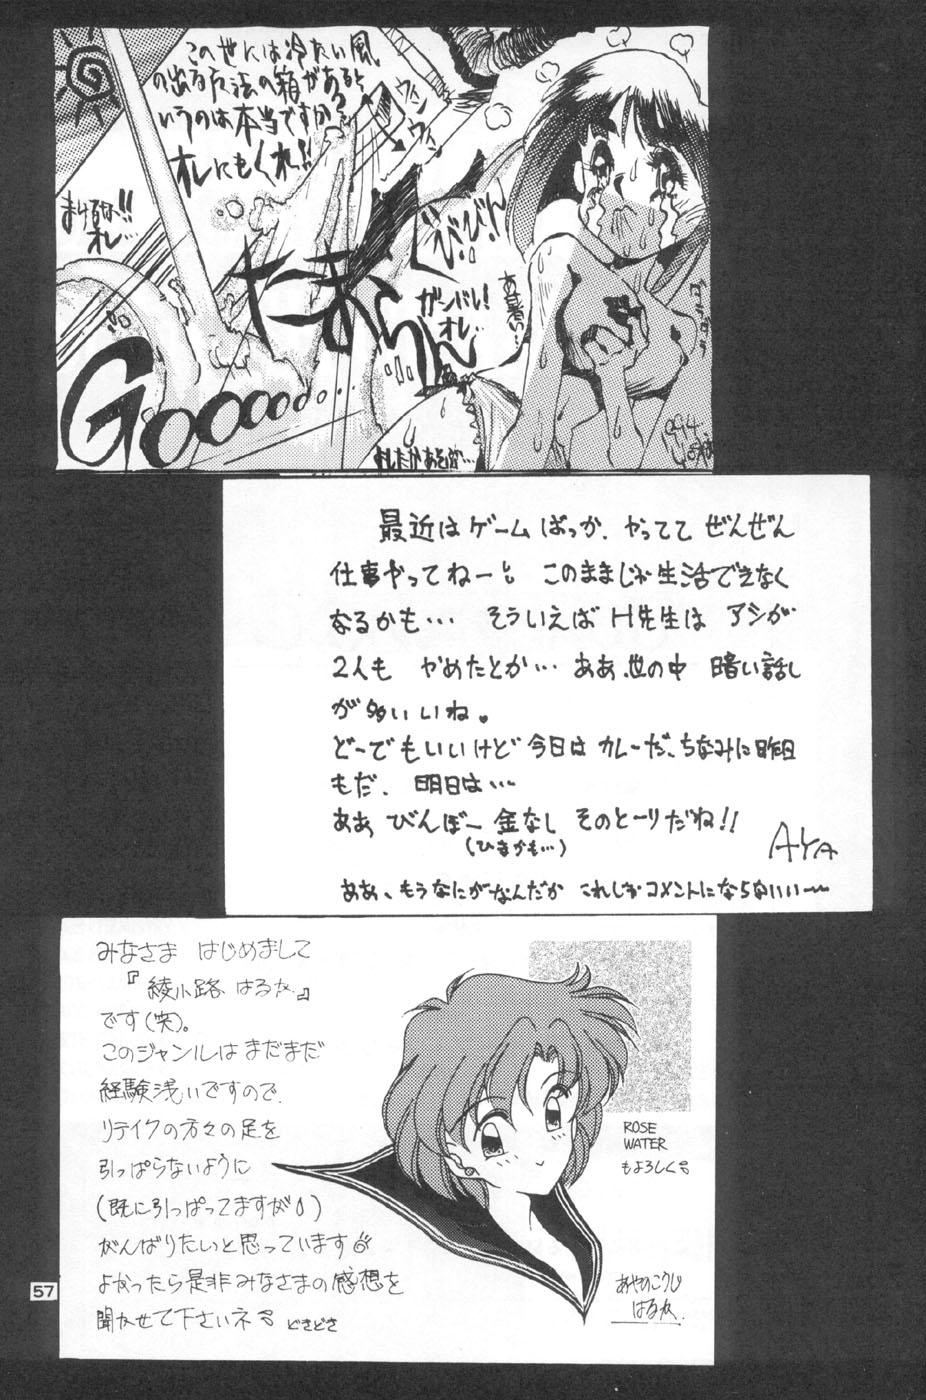 この世には冷たい風
の出る方法の箱があると
いうのは本当ですか?
オレにもくれ!!
ウィン
ウィ
まけるな!!
オレ…
びんびん!!
たまらん
ガンバレ!
オレ…
あ
暑い…
Goooooo...
最近はゲームばっか、やってて ぜんぜん
仕事やってねーし このままじゃ生活できなく
なるかも… そういえば H先生は アシが
2人も やめたとか… ああ、世の中 暗い話し
が多いいね。
どーでもいいけど今日は カレーだ、ちなみに昨日
もだ、 明日は…
ああ びんぼー 金なし そのとーりだね!!
(ひまかも…)
AYA
ああ、もうなにがなんだか これじゃコメントにならないい〜
みなさま はじめまして
『綾小路 はるか』
です(笑)。
このジャンルは まだまだ
経験浅いですので、
リテイクの方々の足を
引っぱらないように
(既に引っぱってますが)
がんばりたいと思っています
よかったら是非みなさまの感想を
聞かせて下さいネ どきどき
ROSE
WATER
もよろしく
あやのこうじ
はるか
57